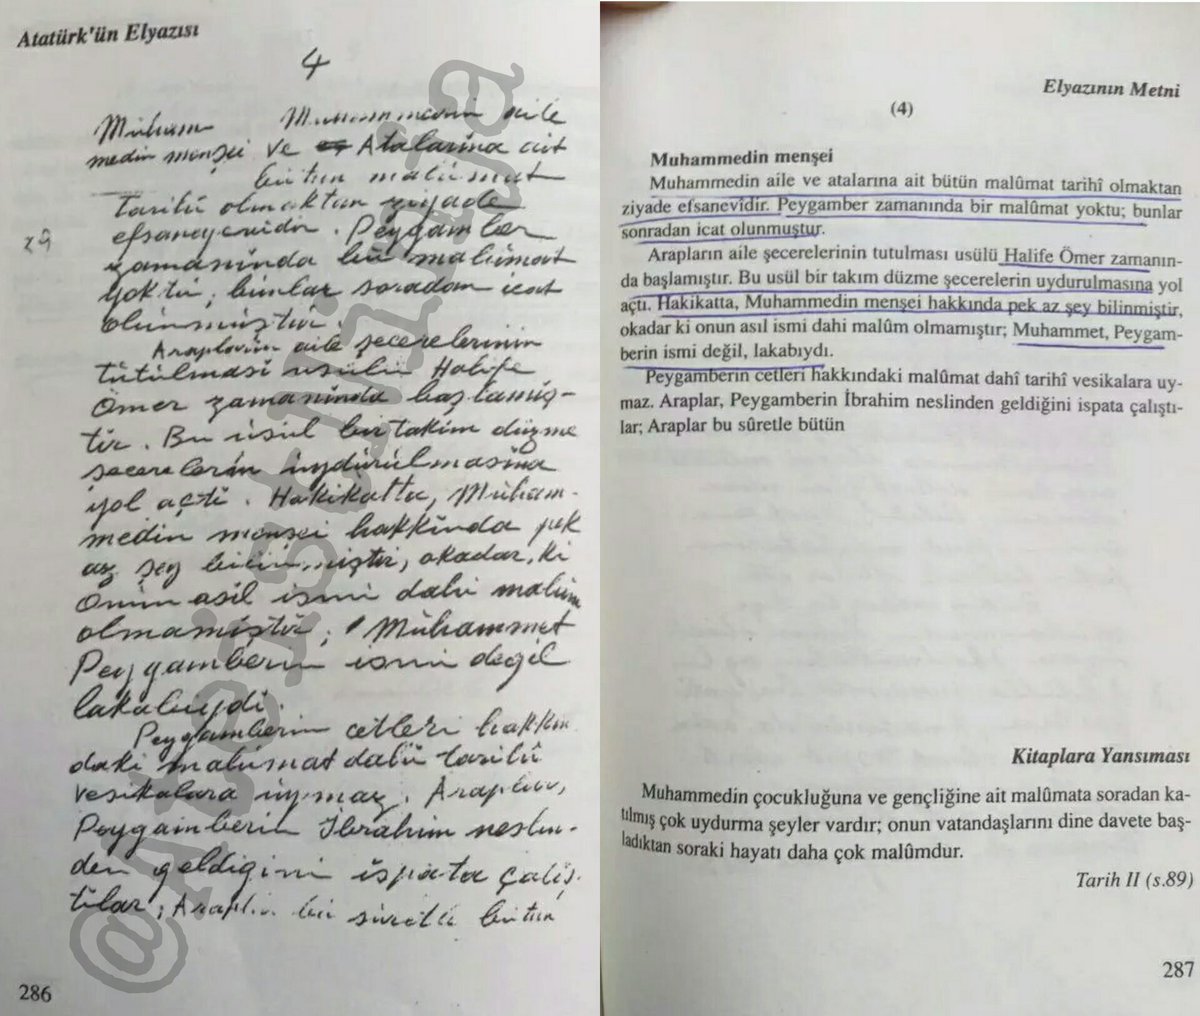 Atatürk'ün Elyazısı
4
Müham Muhammedin aile
medin menşei ve Atalarına ait
bütün malûmat
tarihî olmaktan ziyade
efsaneyenidir. Peygamber
zamanında bir malûmat
yoktu; bunlar soradan icat
olunmuştur.
Arapların aile şecerelerinin
tütülmasi üsulü Halife
Ömer zamanında başlamış-
tır. Bu üsul bir takim düzme
şecerelerin üydürülmasina
yol açti. Hakikatta, Müham-
medin menşei hakkinda pek
az şey bilinmiştir, okadar, ki
onün asil ismi dahi malüm
olmamiştir; Mühammet
Peygamberin ismi değil
lakabiydi.
Peygamberin cetleri hakkın
daki malümat dahi tarihî
vesikalara üymaz. Araplar,
Peygamberin İbrahim neslin-
den geldiğini ispata çaliş-
tilar; Araplar bu süretle bütün
286
@ateist.hipatia
Elyazının Metni
(4)
Muhammedin menşei
Muhammedin aile ve atalarına ait bütün malûmat tarihî olmaktan
ziyade efsanevîdir. Peygamber zamanında bir malûmat yoktu; bunlar
sonradan icat olunmuştur.
Arapların aile şecerelerinin tutulması usülü Halife Ömer zamanın-
da başlamıştır. Bu usül bir takım düzme şecerelerin uydurulmasına yol
açtı. Hakikatta, Muhammedin menşei hakkında pek az şey bilinmiştir,
okadar ki onun asıl ismi dahi malûm olmamıştır; Muhammet, Peygam-
berin ismi değil, lakabıydı.
Peygamberin cetleri hakkındaki malûmat dahî tarihî vesikalara uy-
maz. Araplar, Peygamberin İbrahim neslinden geldiğini ispata çalıştı-
lar; Araplar bu sûretle bütün
Kitaplara Yansıması
Muhammedin çocukluğuna ve gençliğine ait malûmata soradan ka-
tılmış çok uydurma şeyler vardır; onun vatandaşlarını dine davete baş-
ladıktan soraki hayatı daha çok malûmdur.
Tarih II (s.89)
287